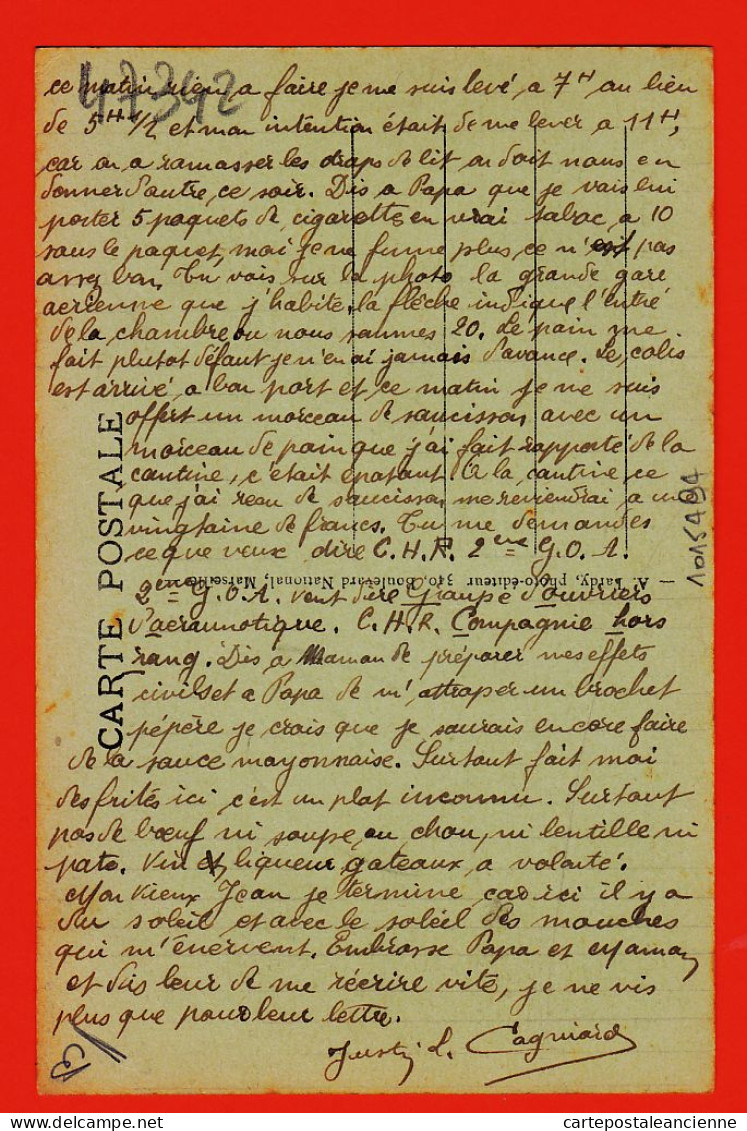 47342
ce matin rien a faire je me suis levé a 7H au lieu
de 5H 1/2 et mon intention était de me lever a 11H,
car on a ramasser les draps de lit on doit nous en
donner d'autre, ce soir. Dis a Papa que je vais lui
porter 5 paquets de cigarettes en vrai tabac, a 10
sous le paquet, moi je ne fume plus, ce n'est pas
assez bon. Tu vois sur la photo la grande gare
aerienne que j'habite, la flêche indique l'entré
de la chambre ou nous sommes 20. Le pain me
fait plutot défaut je n'en ai jamais d'avance. Le colis
est arrivé a bon port et ce matin je me suis
offert un morceau de saucisson avec un
morceau de pain que j'ai fait rapporté de la
cantine, c'était épatant. A la cantine ce
que j'ai reçu de saucisson me reviendrai a une
vingtaine de francs. Tu me demandes
ce que veux dire C.H.R. 2eme G.O.A.
2eme G.O.A. veut dire Groupe d'ouvriers
d'aeraunotique. C.H.R. Compagnie hors
rang. Dis a Maman de préparer mes effets
civils et a Papa de m'attraper un brochet
pépère je crois que je saurais encore faire
de la sauce mayonnaise. Surtout fait moi
des frites ici c'est un plat inconnu. Surtout
pas de bœuf ni soupe, ou chou, ni lentille ni
pate. Vin et liqueur gateaux a volonté.
Mon Vieux Jean je termine car ici il y a
du soleil et avec le soleil des mouches
qui m'énervent. Embrasse Papa et Maman
et dis leur de me récrire vite, je ne vis
plus que pour leur lettre.
L. Cagniard
CARTE POSTALE
— A. Tardy, photo-éditeur, 340, Boulevard National, Marseille
1015494
cartepostaleancienne